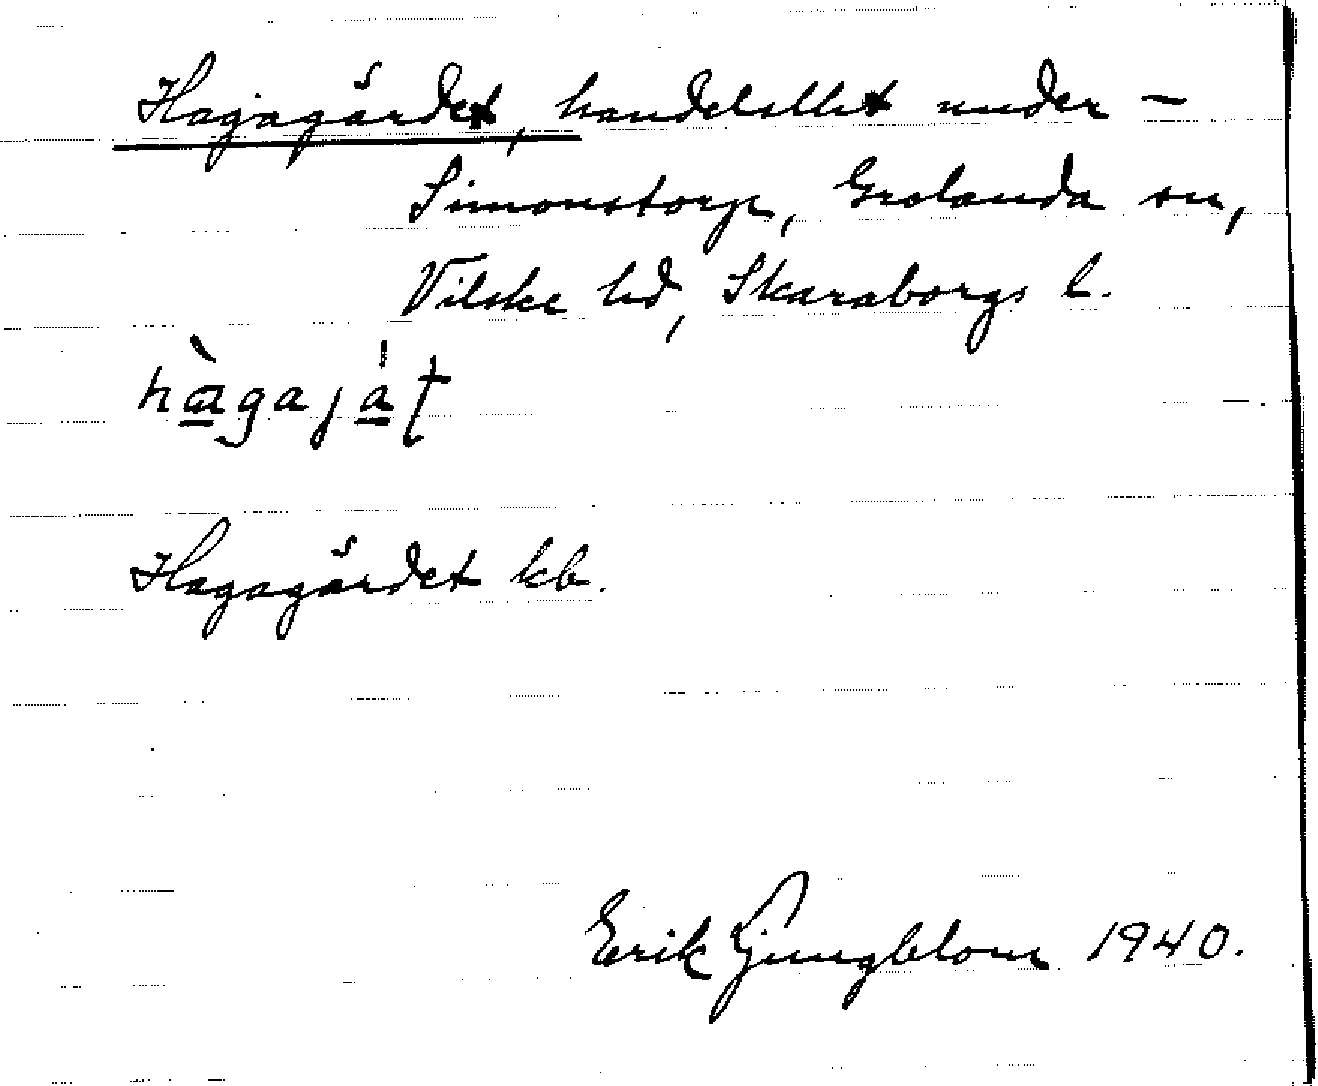 Hagagärdet, handelsllet under –
Simonstorp, Grolanda sn,
Vilske hd, Skaraborgs l.
hàgaját
Hagagärdet kb.
Erik Ljungblom 1940.